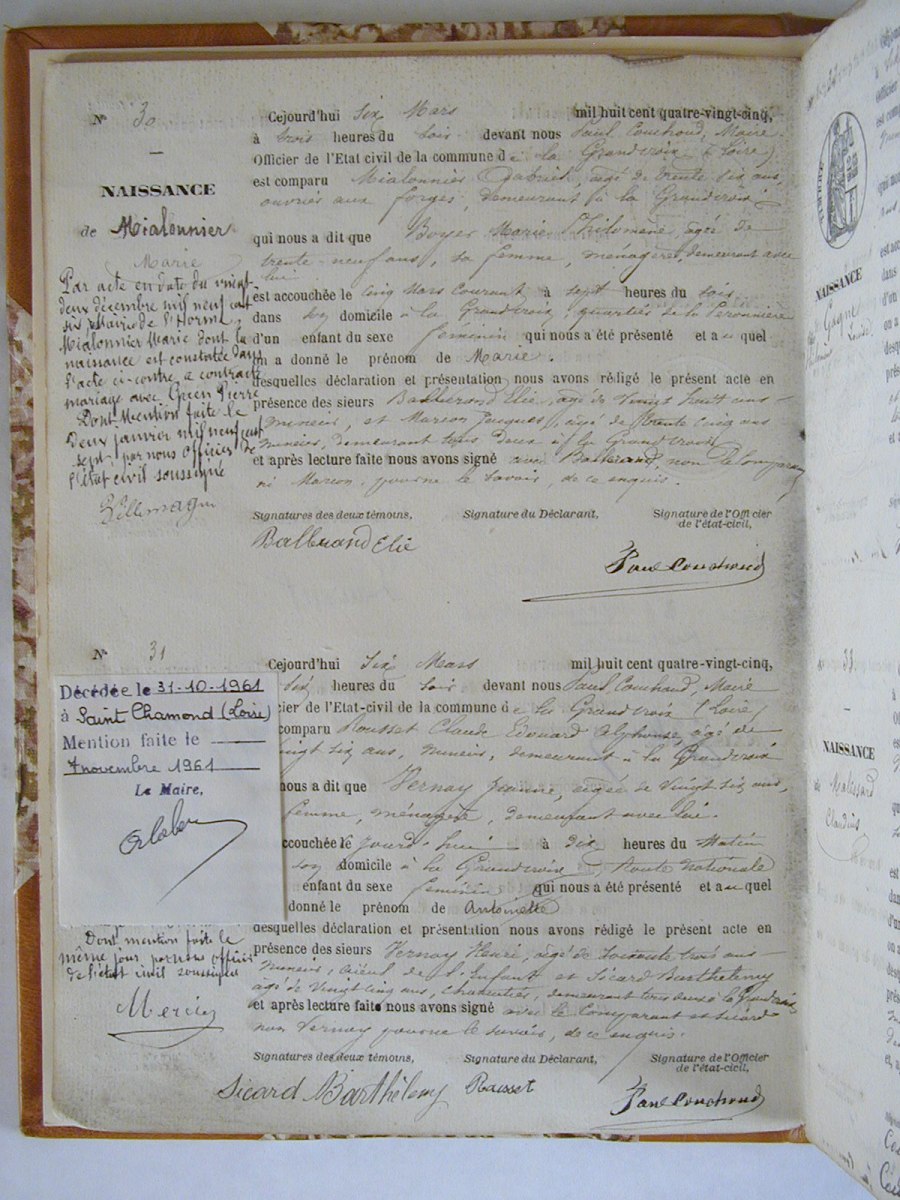 N° 30
NAISSANCE
de Mialonnier
Marie
Par acte en date du vingt-
deux décembre mil neuf cent
six Mairie de l'Horme,
Mialonnier Marie dont la
naissance est constatée dans
l'acte ci-contre a contracté
mariage avec Pierre
Dont Mention faite le
deux janvier mil neuf cent
sept par nous Officier de
l'état civil soussigné
Cejourd'hui Six Mars mil huit cent quatre-vingt-cinq,
à trois heures du soir devant nous Paul Couchoud, Maire
Officier de l'Etat civil de la commune de la Grandcroix (Loire)
est comparu Mialonnier Gabriel, âgé de trente six ans,
ouvrier aux forges, demeurant à la Grandcroix
qui nous a dit que Boyer Marie Philomène, agée de
trente-neuf ans, sa femme, menagère, demeurant avec
lui
est accouchée le cinq Mars Courant à sept heures du soir
dans son domicile à la Grandcroix, quartier de la Peronnière
d'un enfant du sexe féminin qui nous a été présenté et au quel
on a donné le prénom de Marie.
desquelles déclaration et présentation nous avons rédigé le présent acte en
présence des sieurs Ballerand Elie, âgé de Vingt huit ans
mineur, et Marcon Jacques, âgé de trente cinq ans
mineur, demeurant tous deux à la Grandcroix
et après lecture faite nous avons signé avec Ballerand, non le Comparant
ni Marcon, pour ne le savoir, de ce enquis.
Signatures des deux témoins, Signature du Déclarant, Signature de l'Officier
de l'état-civil,
Ballerand Elie
Paul Couchoud
N° 31
Décédée le 31-10-1961
à Saint Chamond (Loire)
Mention faite le
7 novembre 1961
Le Maire,
Dont mention faite le
même jour par nous officier
de l'état civil soussigné
Mercier
Cejourd'hui Six Mars mil huit cent quatre-vingt-cinq,
six heures du soir devant nous Paul Couchoud, Maire
cier de l'Etat-civil de la commune de la Grandcroix (Loire)
comparu Rousset Claude Edouard Alphonse, âgé de
vingt six ans, mineur, demeurant à la Grandcroix
nous a dit que Vernay Jeanne, agée de Vingt six ans,
femme, ménagère, demeurant avec lui.
ccouchée le jourd'hui à dix heures du Matin
son domicile à la Grandcroix, Route Nationale
enfant du sexe féminin qui nous a été présenté et au quel
donné le prénom de Antoinette
desquelles déclaration et présentation nous avons rédigé le présent acte en
présence des sieurs Vernay Henri, âgé de soixante trois ans
mineur, aïeul de l'Enfant et Sicard Barthélemy
agé de Vingt cinq ans, charcutier, demeurant tous deux à la Grandcroix
et après lecture faite nous avons signé avec le Comparant et Sicard
non Vernay pour ne le savoir, de ce enquis.
Signatures des deux témoins, Signature du Déclarant, Signature de l'Officier
de l'état-civil,
Sicard Barthélemy Rousset
Paul Couchoud
TIMBRE
NAISSANCE
de Gagne
Louise
N° 33
NAISSANCE
de Malissard
Claudius